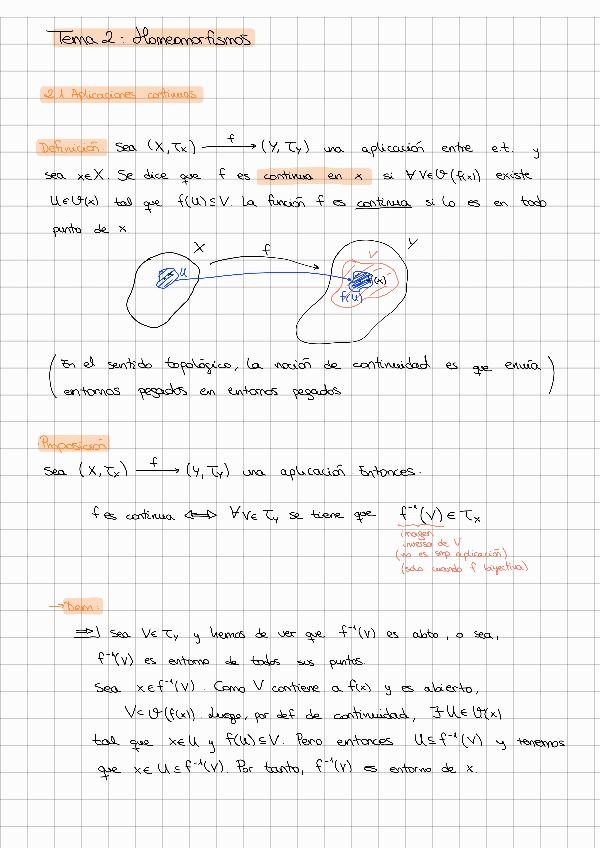 Tema 2: Homeomorfismos
2.1 Aplicaciones continuas
Definición: Sea (X, τx) —f→ (Y, τy) una aplicación entre e.t. y
sea x∈X. Se dice que f es continua en x si ∀V∈ϑ(f(x)) existe
U∈ϑ(x) tal que f(U)⊆V. La función f es continua si lo es en todo
punto de x
X f Y
U V (x)
f(U)
(En el sentido topológico, la noción de continuidad es que envía
entornos pegados en entornos pegados)
Proposición
Sea (X, τx) —f→ (Y, τy) una aplicación Entonces.
f es continua ⟺ ∀V∈τy se tiene que f⁻¹(V)∈τx
imagen
inversa de V
(no es smp aplicación)
(solo cuando f biyectiva)
→Dem:
⟹] Sea V∈τy y hemos de ver que f⁻¹(V) es abto, o sea,
f⁻¹(V) es entorno de todos sus puntos.
Sea x∈f⁻¹(V). Como V contiene a f(x) y es abierto,
V∈ϑ(f(x)). Luego, por def de continuidad, ∃U∈ϑ(x)
tal que x∈U y f(U)⊆V. Pero entonces U⊆f⁻¹(V) y tenemos
que x∈U⊆f⁻¹(V). Por tanto, f⁻¹(V) es entorno de x.